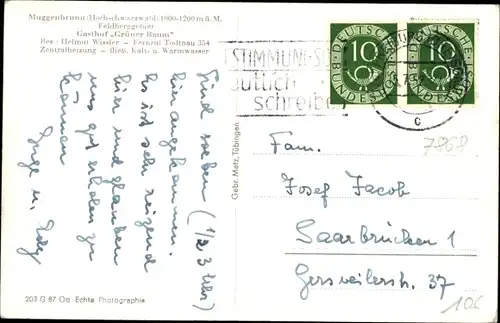 Muggenbrunn (Hoch-schwarzwald) 1000-1200 m ü. M.
Feldberggebiet
Gasthof „Grüner Baum"
Bes : Helmut Wissler - Fernruf Todtnau 354
Zentralheizung - fließ. Kalt- u. Warmwasser
Sind soeben (1/2 3 Uhr)
hier angekommen.
Es ist sehr reizend
hier und glauben
uns gut erholen zu
können
203 G 87 Oa Echte Photographie
Gebr. Metz, Tübingen
STIMMUNGS
deutlich
schreiben
DEUTSCHE
BUNDESPOST
10
DEUTSCHE
BUNDESPOST
10
c
7868
Fam.
Josef Jacob
Saarbrücken 1
Gersweilerstr. 37
10€